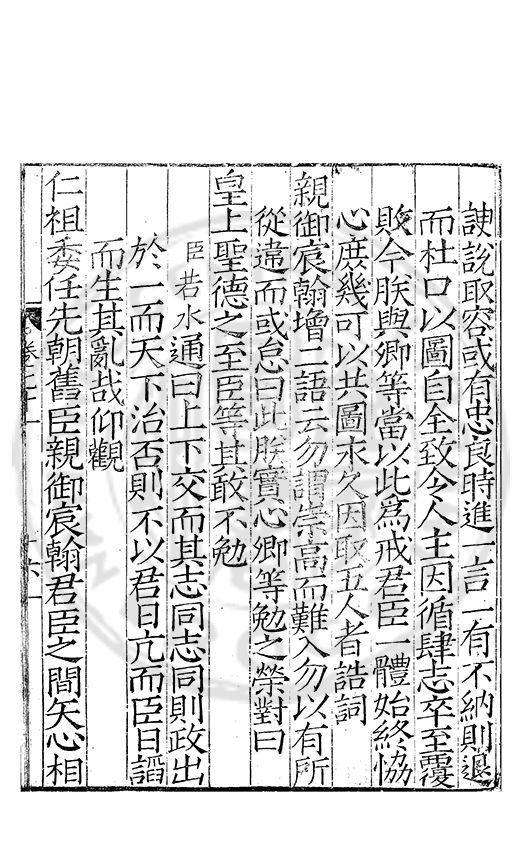 諛說取容或有忠良時進一言一有不納則退
而杜口以圖自全致令人主因循肆志卒至覆
敗今朕與卿等當以此為戒君臣一體始終恊
心庶幾可以共圖永久因取五人者誥詞
親御宸翰增二語云勿謂崇高而難入勿以有所
從違而或怠曰此朕實心卿等勉之榮對曰
皇上聖德之至臣等其敢不勉
臣若水通曰上下交而其志同志同則政出
於一而天下治否則不以君日亢而臣日謟
而生其亂哉仰觀
仁祖委任先朝舊臣親御宸翰君臣之間矢心相
卷二十一
十六